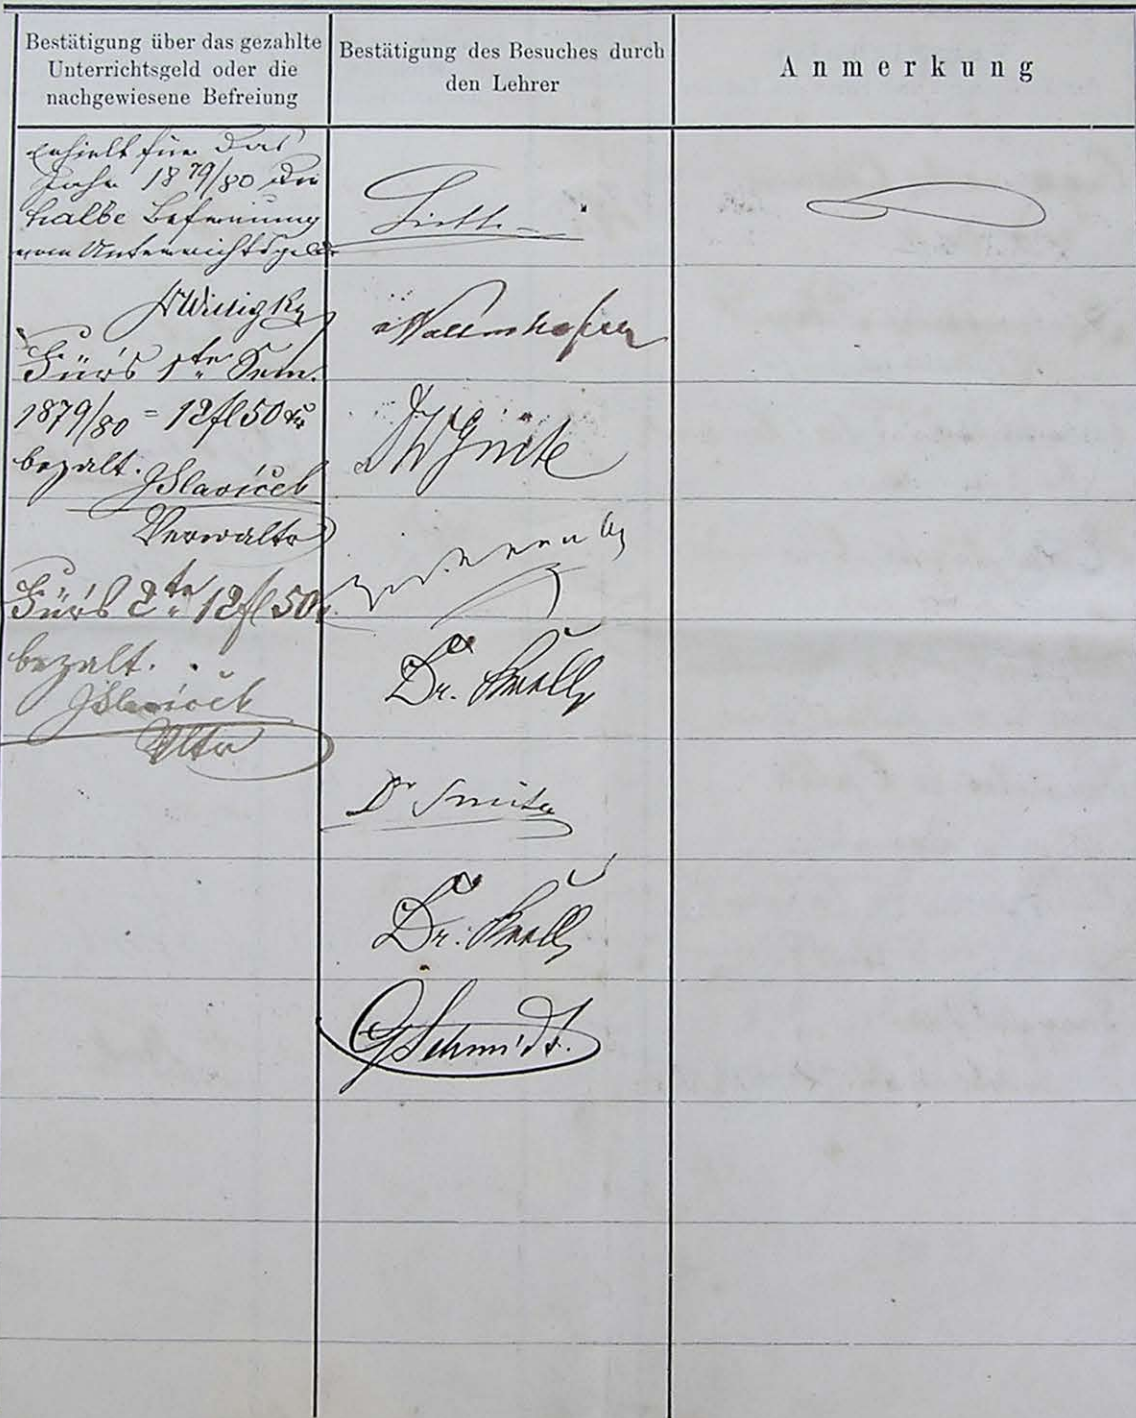 Bestätigung über das gezahlte
Unterrichtsgeld oder die
nachgewiesene Befreiung
Bestätigung des Besuches durch
den Lehrer
Anmerkung
Erhielt für das
Jahr 1879/80 die
halbe Befreiung
vom Unterrichtsgelde
Fürs 1te Sem.
1879/80 = 12 fl 50 kr
bezalt.
JSlavíček
Verwalter
Fürs 2te 12 fl 50
bezalt.
JSlavíček
Vltr
Waltenhofen
WGintl
Dr. Knoll
Dr
Dr. Knoll
GSchmidt.